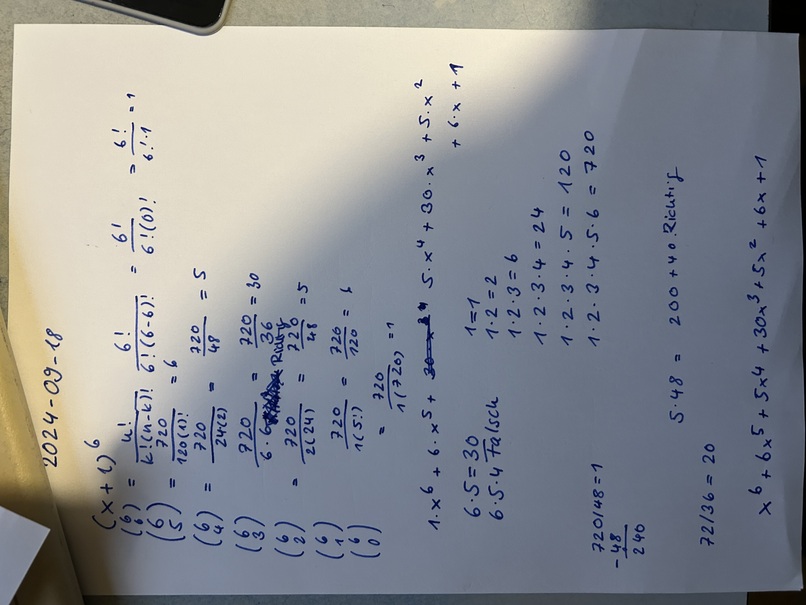 2024-09-18
(x+1)^6
(6 6) = n!/k!(n-k)! = 6!/6!(6-6)! = 6!/6!(0)! = 6!/6!·1 = 1
(6 5) = 720/120(1)! = 6
(6 4) = 720/24(2) = 720/48 = 5
(6 3) = 720/6·6 = 720/36 = 30
Richtig
(6 2) = 720/2(24) = 720/48 = 5
(6 1) = 720/1(5!) = 720/120 = 6
(6 0) = 720/1(720) = 1
1·x^6 + 6·x^5 + 5·x^4 + 30·x^3 + 5·x^2
+ 6·x + 1
6·5=30
6·5·4 Falsch
1=1
1·2=2
1·2·3=6
1·2·3·4=24
1·2·3·4·5=120
1·2·3·4·5·6=720
720/48=1
-48
240
5·48 = 200+40 Richtig
72/36 = 20
x^6+6x^5+5x^4+30x^3+5x^2+6x+1